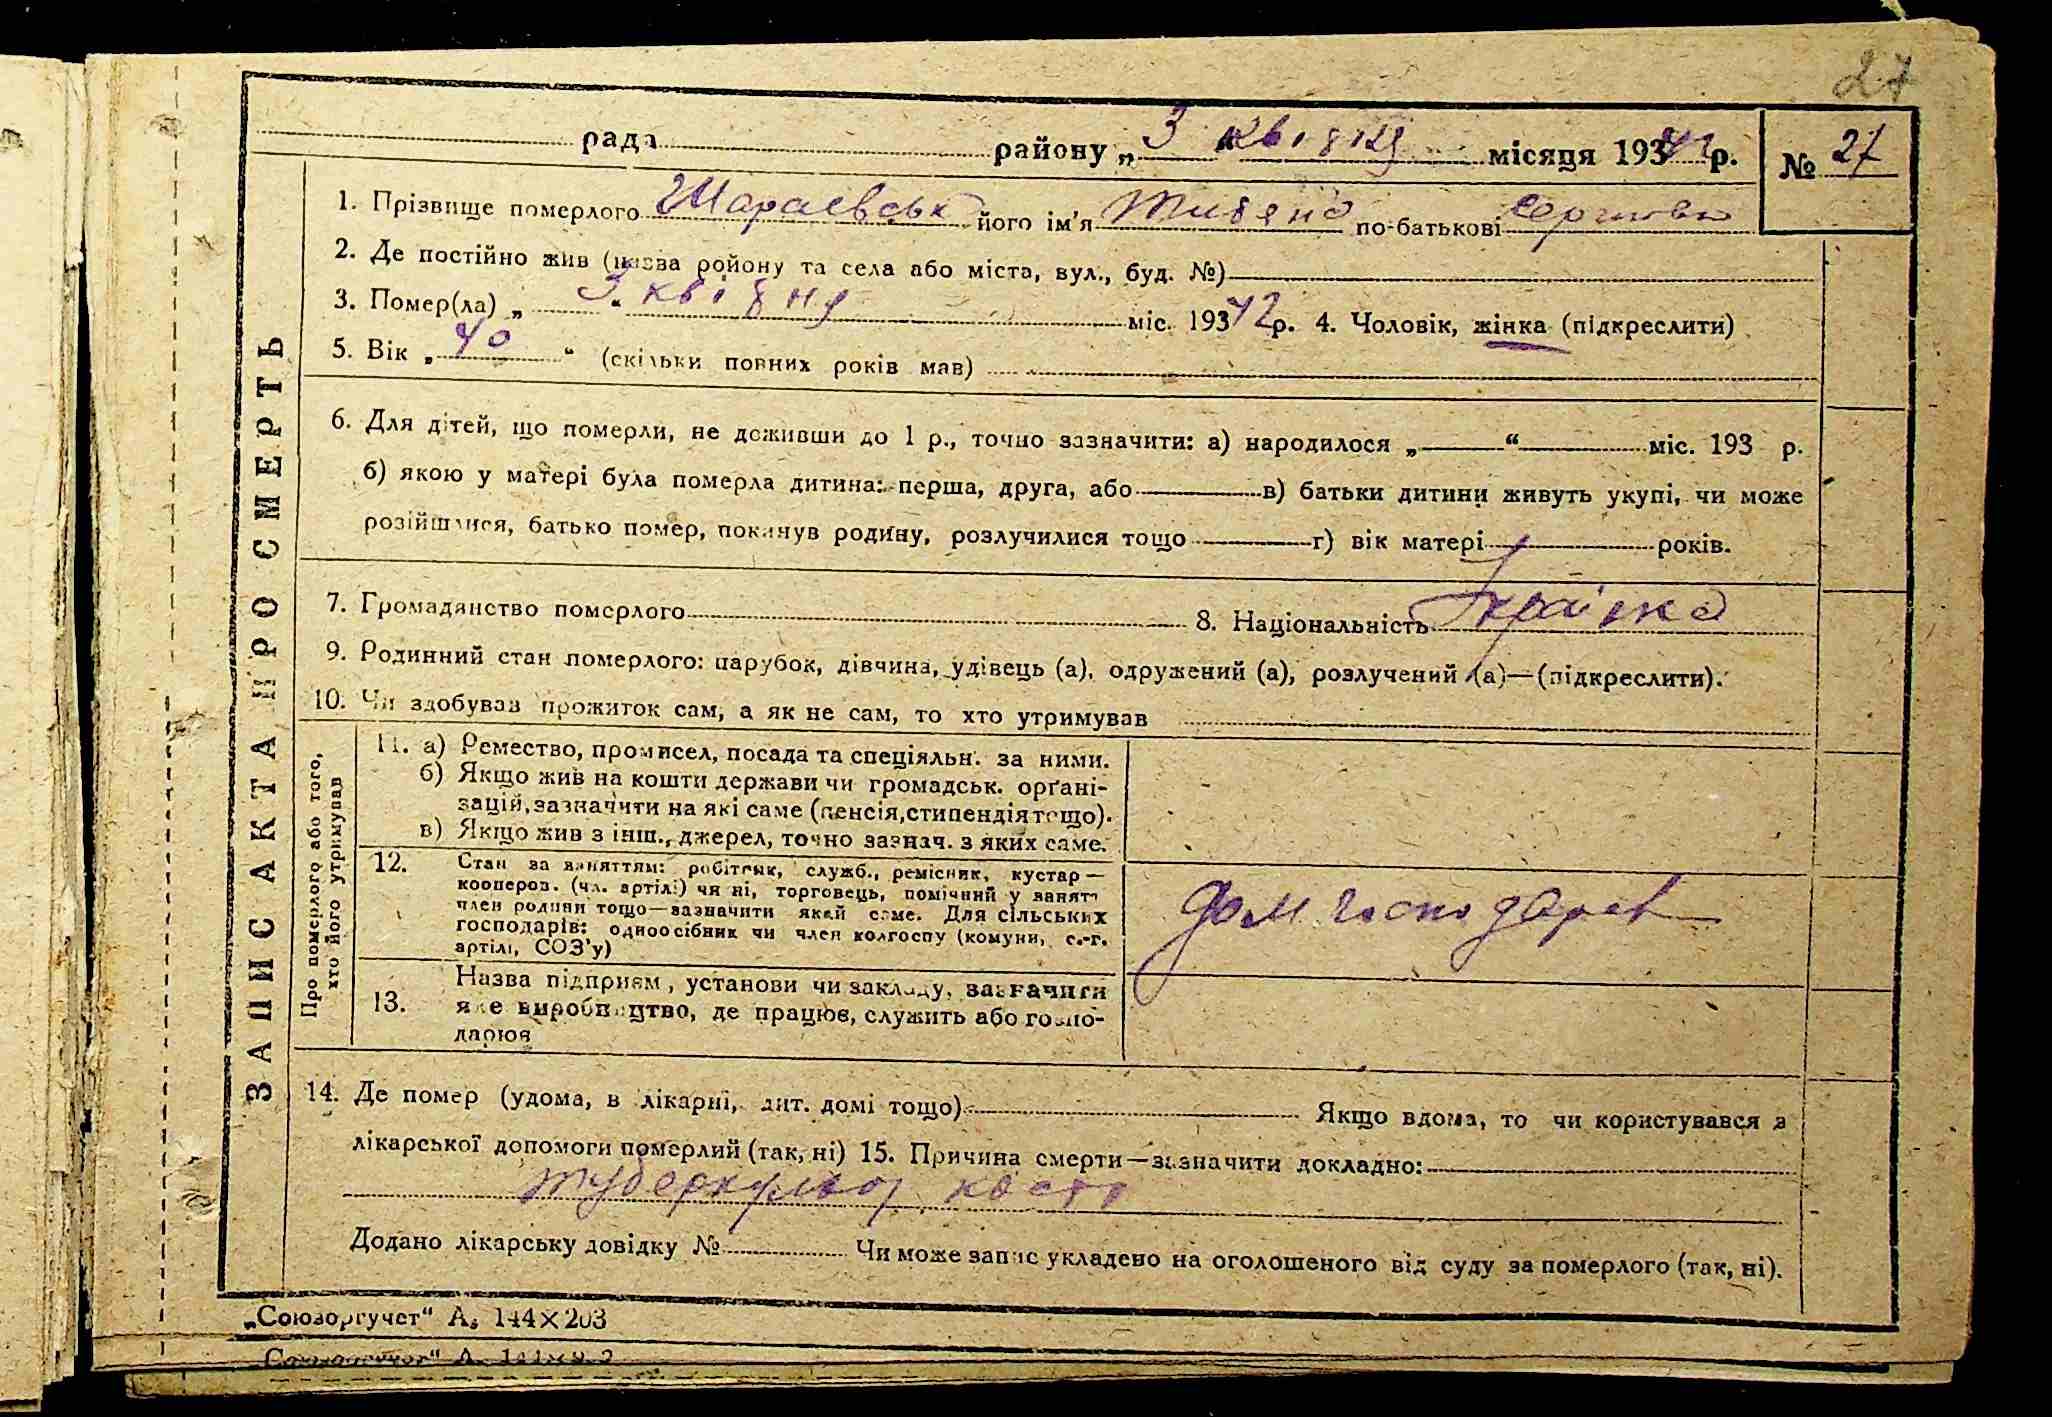 27
рада району „ 3 “ квітня місяця 1942 р. № 27
1. Прізвище померлого його ім'я по-батькові
2. Де постійно жив (назва району та села або міста, вул., буд. №)
3. Помер(ла) „ 3 “ квітня міс. 193 42 р. 4. Чоловік, жінка (підкреслити)
5. Вік „ 40 “ (скільки повних років мав)
6. Для дітей, що померли, не доживши до 1 р., точно зазначити: а) народилося „ “ міс. 193 р.
б) якою у матері була померла дитина: перша, друга, або в) батьки дитини живуть укупі, чи може
розійшлися, батько помер, покинув родину, розлучилися тощо г) вік матері років.
7. Громадянство померлого 8. Національність Українка
9. Родинний стан померлого: парубок, дівчина, удівець (а), одружений (а), розлучений (а)—(підкреслити).
10. Чи здобував прожиток сам, а як не сам, то хто утримував
ЗАПИС АКТА ПРО СМЕРТЬ
Про померлого або того,
хто його утримував
11. а) Ремество, промисел, посада та спеціяльн. за ними.
б) Якщо жив на кошти держави чи громадськ. орґані-
зацій, зазначити на які саме (пенсія, стипендія тощо).
в) Якщо жив з інш., джерел, точно зазнач. з яких саме.
12. Стан за заняттям: робітник, служб., ремісник, кустар—
коопероз. (чл. артілі) чи ні, торговець, помічний у занят.
член родини тощо—зазначити який саме. Для сільських
господарів: одноосібник чи член колгоспу (комуни, с.-г.
артілі, СОЗ'у)
дом господарст
13. Назва підприєм, установи чи закладу, зазначити
яке виробництво, де працює, служить або госпо-
дарює
14. Де помер (удома, в лікарні, дит. домі тощо) Якщо вдома, то чи користувався з
лікарської допомоги померлий (так, ні) 15. Причина смерти—зазначити докладно:
туберкульоз кости
Додано лікарську довідку № Чи може запис укладено на оголошеного від суду за померлого (так, ні).
„Союзоргучет“ А₅ 144×203